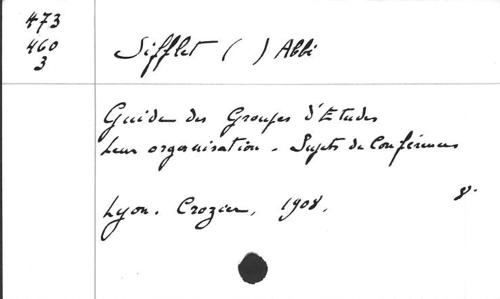 473
460
3
Sifflet ( ) Abbé
Guide des Groupes d'Etudes
Leur organisation. Sujets de Conférences
Lyon. Crozier, 1908. 8.